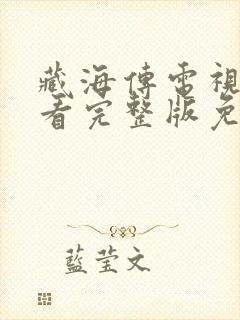 藏海傳電視
看完整版免
藍莹文